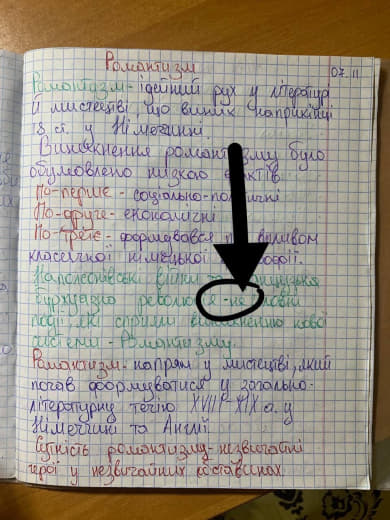 Романтизм 07.11
Романтизм - ідейний рух у літературі
й мистецтві, що виник наприкінці
18 ст. у Німеччині.
Виникнення романтизму було
обумовлено низкою
По-перше - соціально-
По-друге - економічні
По-третє - формувався впливом
класичної німецької
Наполеонівські війни та
буржуазна революція -
події, які сприяли нової
системи - Романтизму.
Романтизм - напрям у мистецтві, який
почав формуватися у загально-
літературну течію XVIII - XIX с. у
Німеччині та Англії.
Сутність романтизму - незвичайні
герої у незвичайних обставинах.